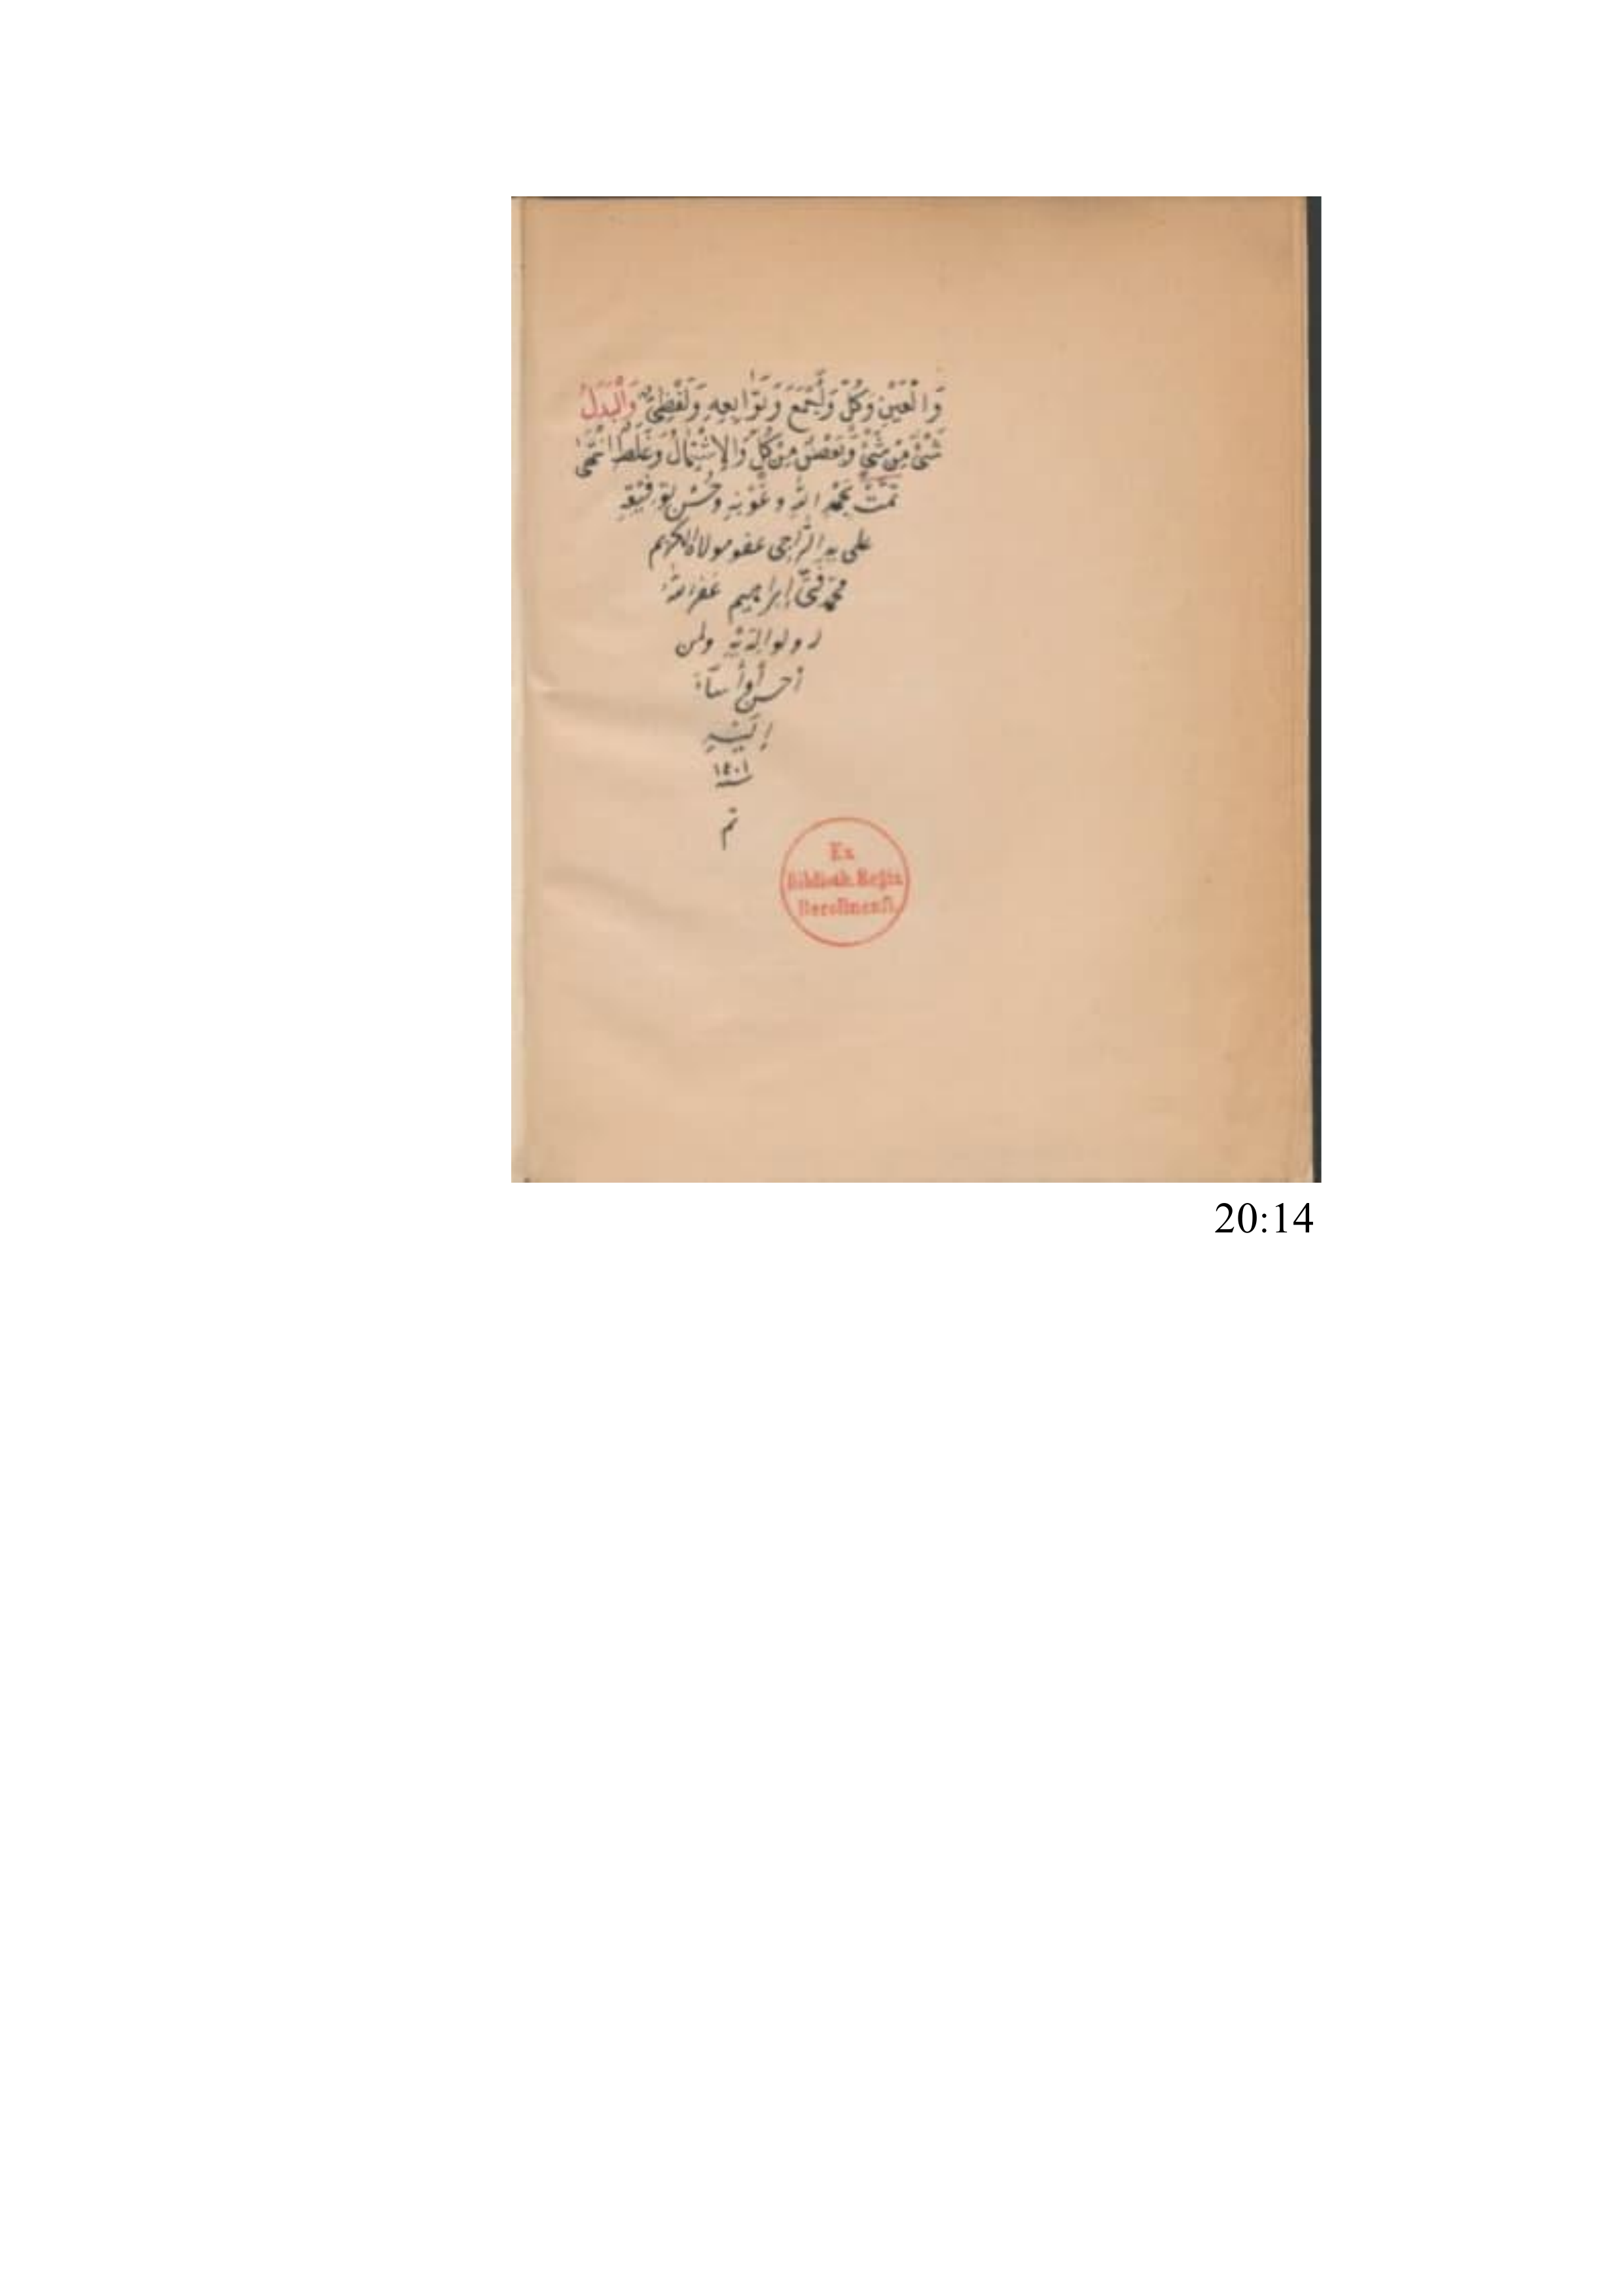 وَالْعَيْنِ وَكُلٌّ وَأَجْمَعَ وَتَوَابِعِهِ وَلَفْظِيٌّ وَالْبَدَلُ
شَيْءٌ مِنْ شَيْءٍ وَبَعْضٌ مِنْ كُلٍّ وَالْإِشْتِمَالُ وَغَلَطٌ انْتَهَى
تَمَّتْ بِحَمْدِ اللهِ وَعَوْنِهِ وَحُسْنِ تَوْفِيقِهِ
على يد الراجى عفو مولاه الكريم
محمد فتحى إبراهيم غفر الله
له ولوالديه ولمن
أحسن أو أساء
إليه
١٤٠١
تم
Ex
Biblioth. Regia
Berolinensi.
20:14